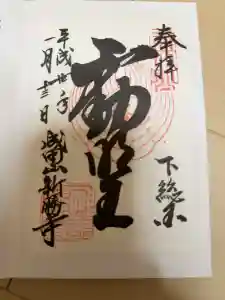 奉拝
下総国
不動明王
平成廿八年
一月十三日
成田山新勝寺